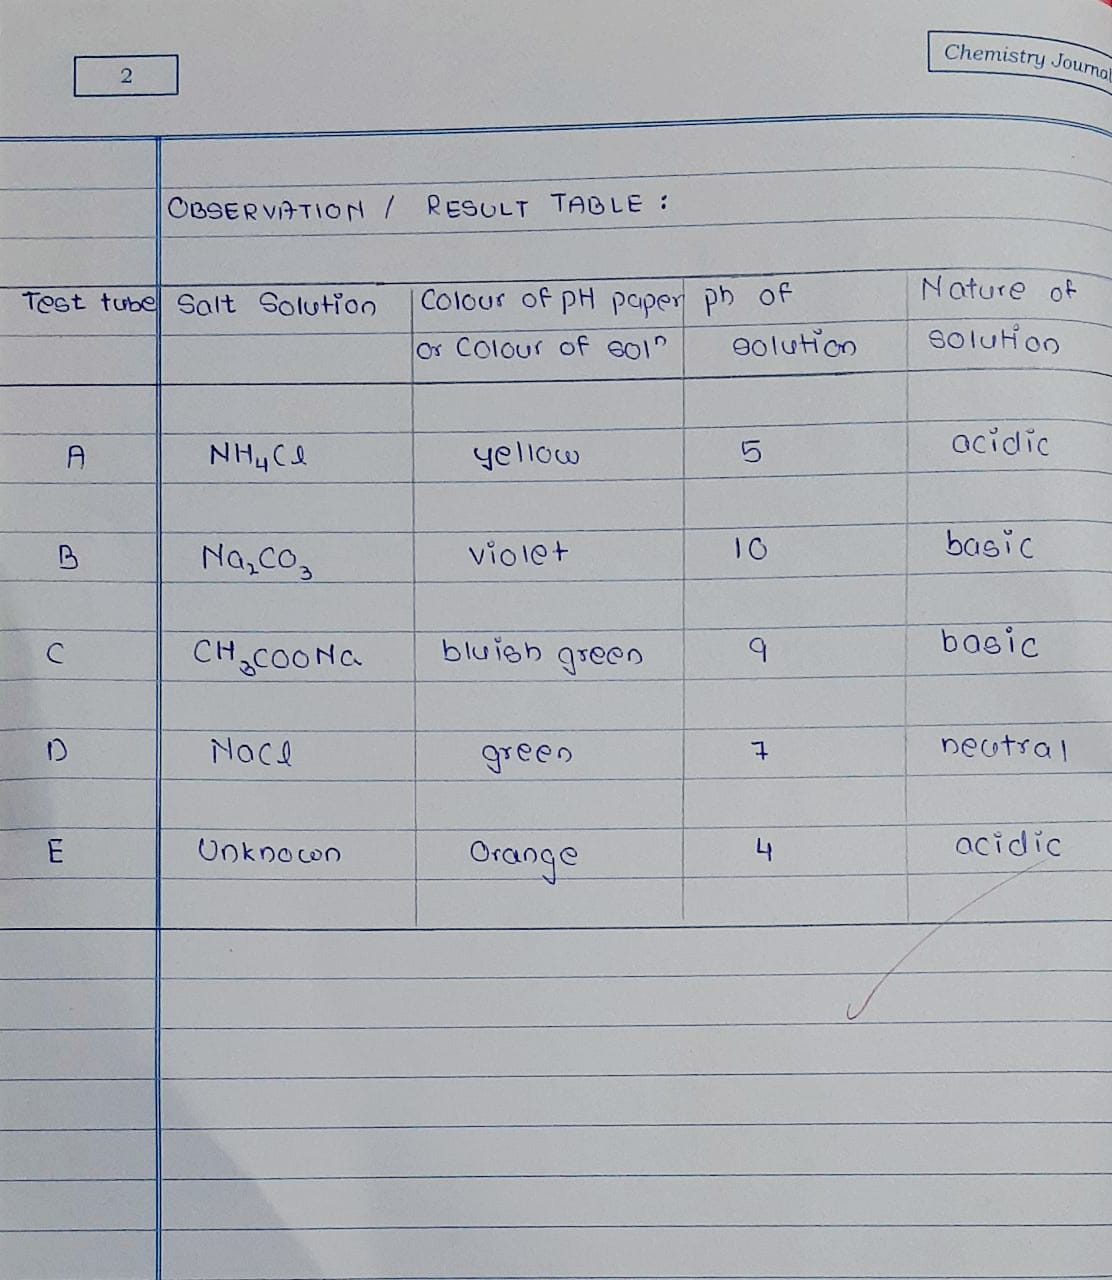 2
Chemistry Journal
OBSERVATION / RESULT TABLE :
Test tube Salt Solution Colour of pH paper ph of Nature of
or Colour of solⁿ solution solution
A NH₄Cl yellow 5 acidic
B Na₂CO₃ violet 10 basic
C CH₃COONa bluish green 9 basic
D NaCl green 7 neutral
E Unknown Orange 4 acidic